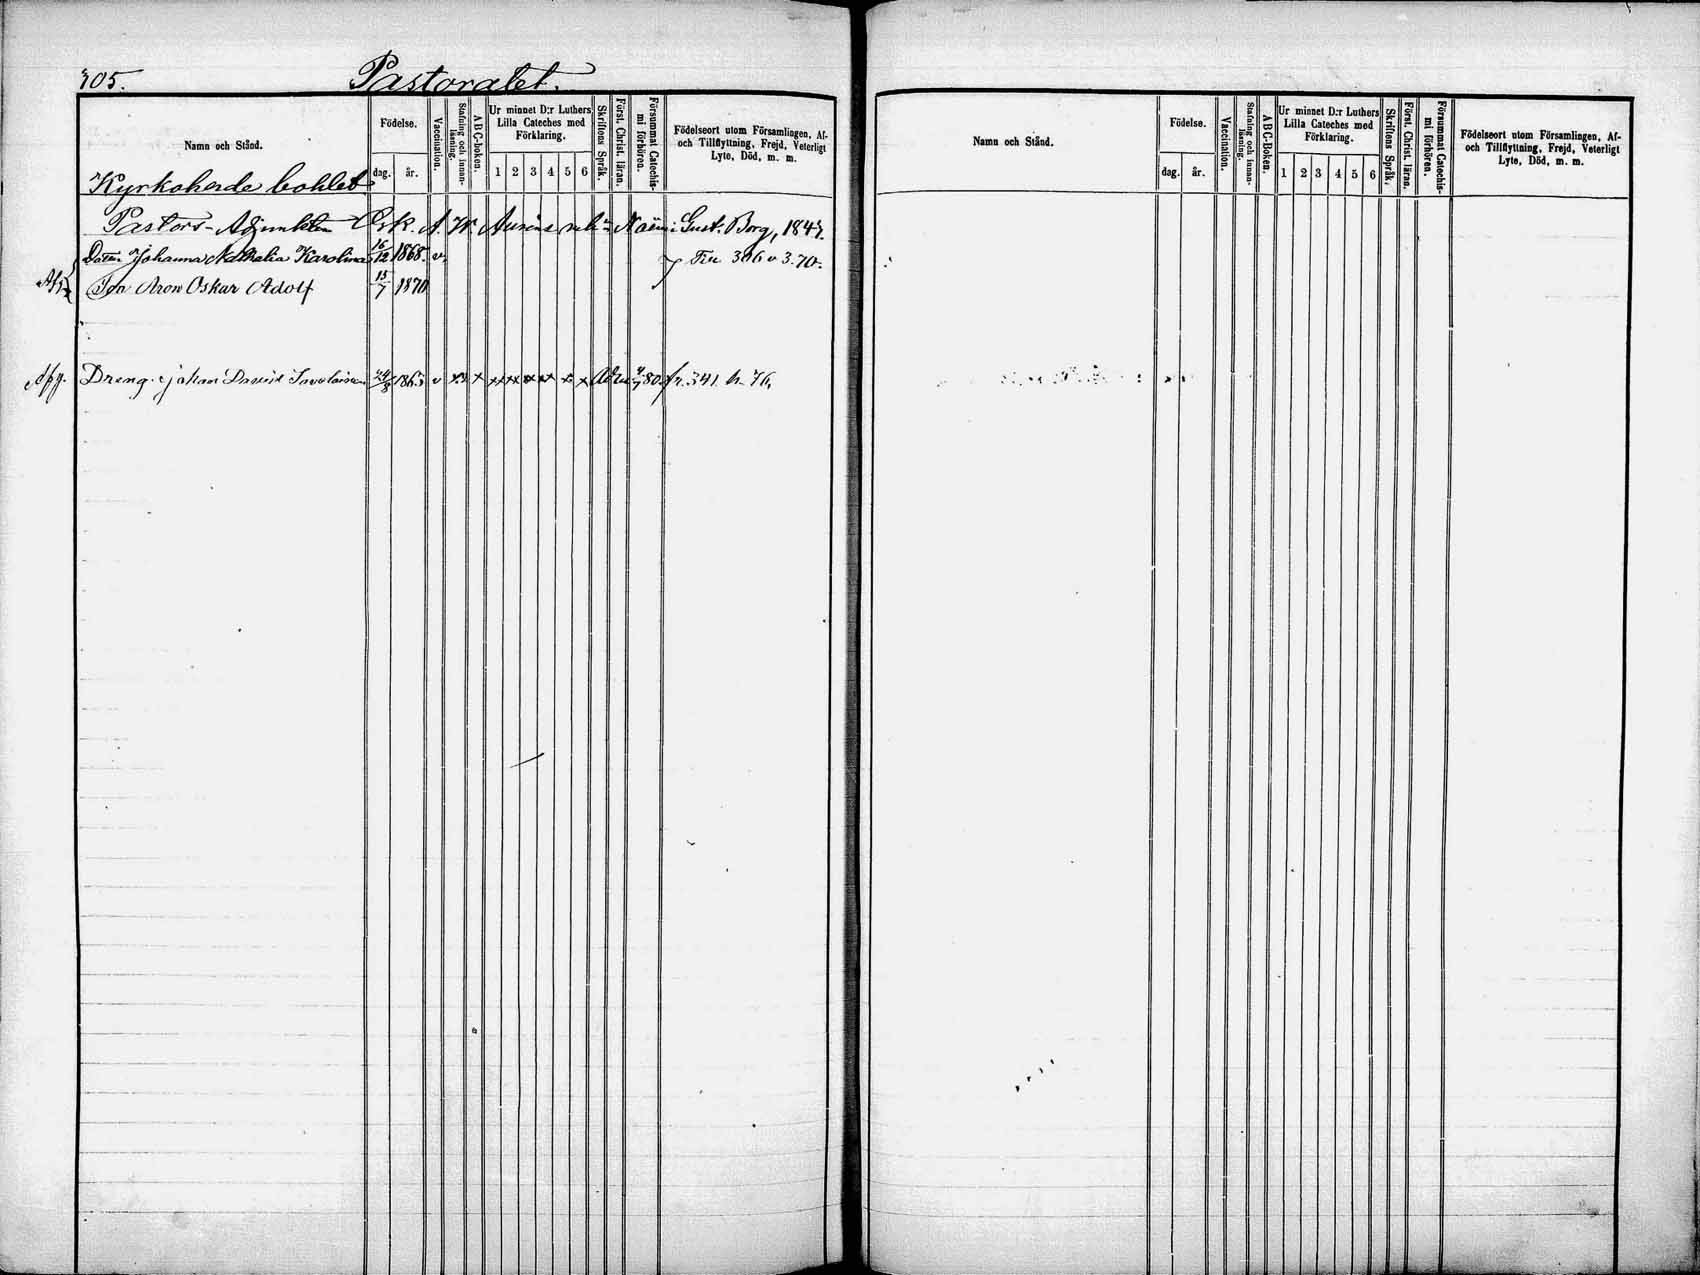 305. Pastoratet.
Namn och Stånd.
Födelse.
dag. år.
Vaccination.
Stafning och innan-
läsning.
ABC-boken.
Ur minnet D:r Luthers
Lilla Cateches med
Förklaring.
1 2 3 4 5 6
Skriftens Språk.
Först. Christ. läran.
Försummat Catechis-
mi förhören.
Födelseort utom Församlingen, Af-
och Tillflyttning, Frejd, Veterligt
Lyte, Död, m. m.
Kyrkoherde bohlet
Pastors-Adjunkten Gust. Borg, 1847.
Johanna Nathalia Karolina 16/12 1868. v. 306 v 3.70.
Aron Oskar Adolf 15/7 1870
Dreng. Johan David 24/8 1863 v x x fr. 341 76.
Namn och Stånd.
Födelse.
dag. år.
Vaccination.
Stafning och innan-
läsning.
ABC-Boken.
Ur minnet D:r Luthers
Lilla Cateches med
Förklaring.
1 2 3 4 5 6
Skriftens Språk.
Först. Christ. läran.
Försummat Catechis-
mi förhören.
Födelseort utom Församlingen, Af-
och Tillflyttning, Frejd, Veterligt
Lyte, Död, m. m.